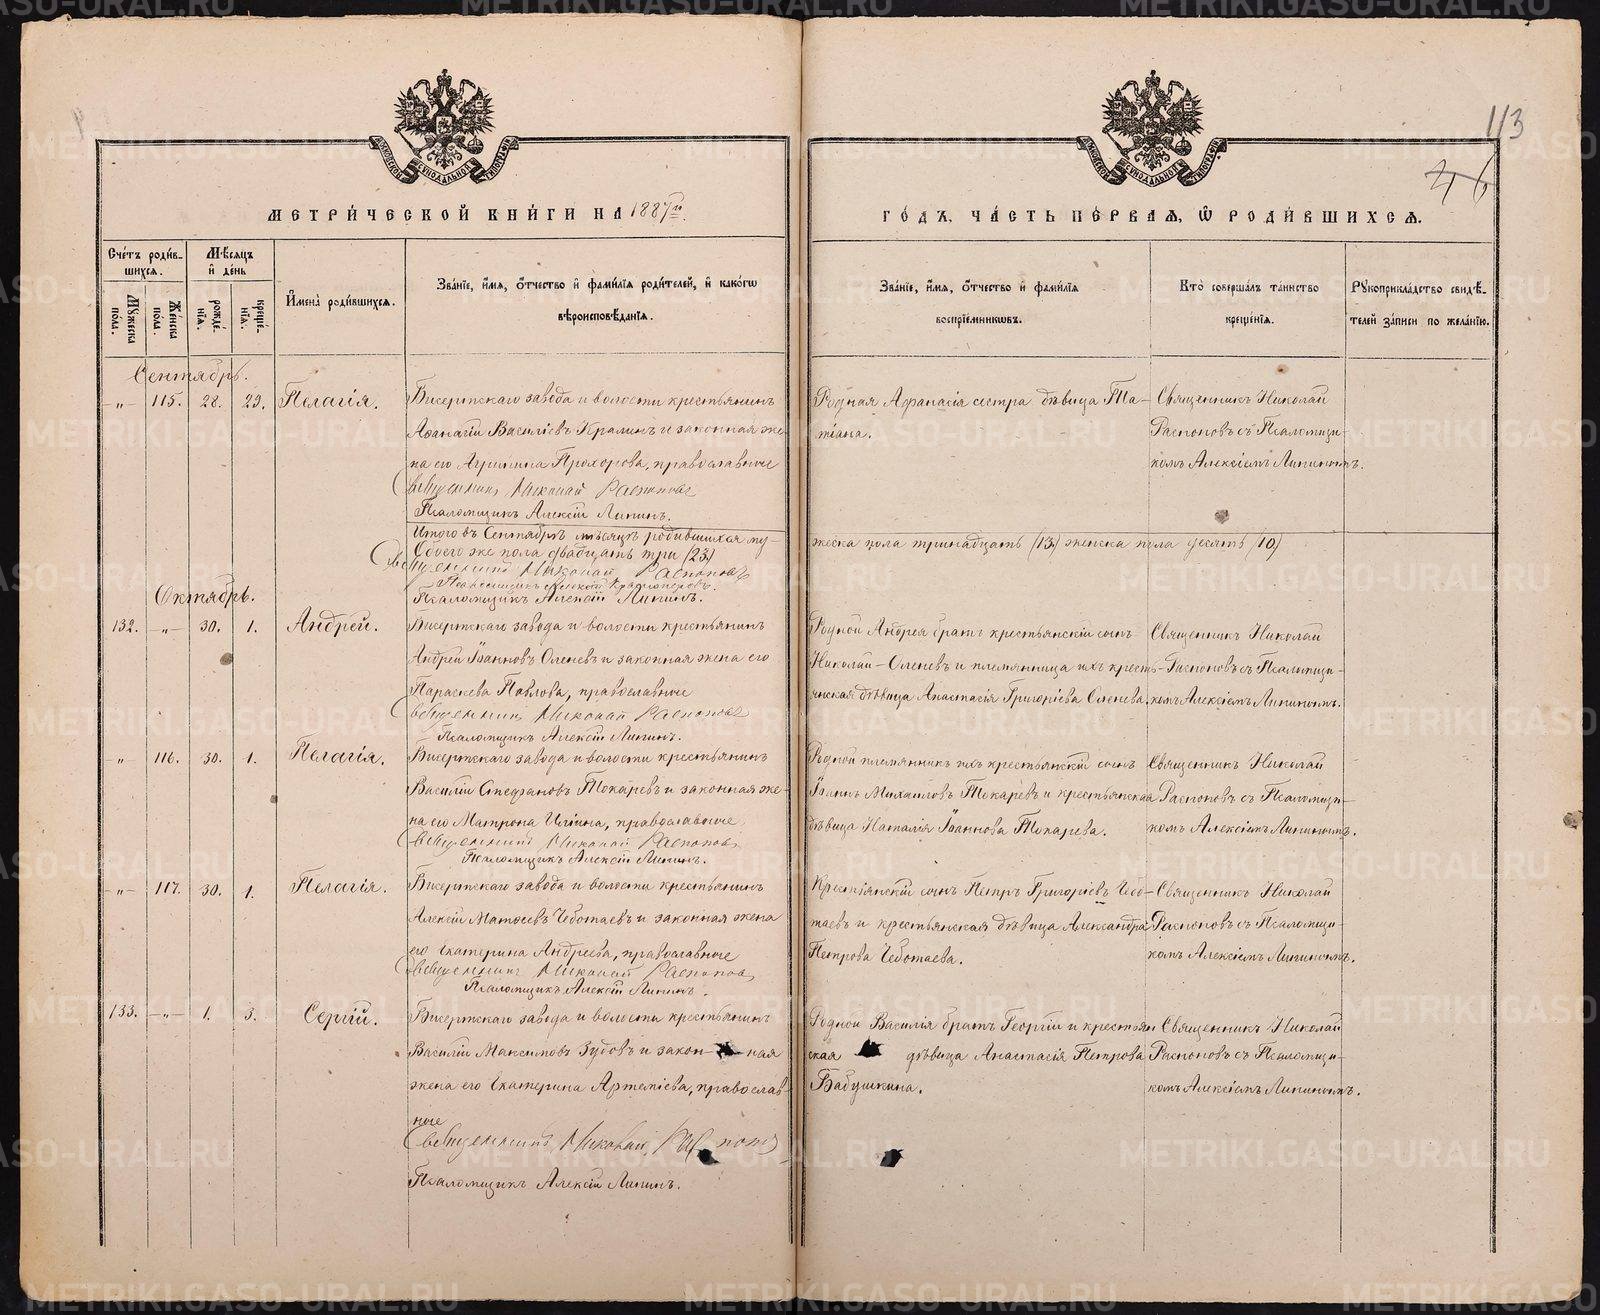 113
46
МЕТРИЧЕСКОЙ КНИГИ НА 1887й
ГОДЪ, ЧАСТЬ ПЕРВАЯ, Ѿ РОДИВШИХСЯ.
Счетъ родив-
шихся.
Мѣсяцъ
и день
Мужеска
пола.
Женска
пола.
рожде-
нія.
креще-
нія.
Имена родившихся.
Званіе, имя, отчество и фамилія родителей, и какогѡ
вѣроисповѣданія.
Званіе, имя, отчество и фамилія
воспріемникѡвъ.
Кто совершалъ таинство
крещенія.
Рукоприкладство свидѣ-
телей записи по желанію.
Сентябрь.
-"- 115. 28. 29. Пелагія.
Бисертскаго завода и волости крестьянинъ
Аѳанасій Василіевъ Кралинъ и законная же-
на его Агрипина Прохорова, православные
Священникъ Николай Распоповъ
Псаломщикъ Алексій Липинъ.
Родная Афанасія сестра дѣвица Та-
тіана.
Священникъ Николай
Распоповъ съ Псаломщи-
комъ Алексіемъ Липинымъ.
Итого въ Сентябрѣ мѣсяцѣ родившихся му-
жеска пола тринадцать (13) женска пола десять (10)
Обоего же пола двадцать три (23)
Священникъ Николай Распоповъ
Псаломщикъ Алексій Липинъ.
Октябрь.
132. -"- 30. 1. Андрей.
Бисертскаго завода и волости крестьянинъ
Андрей Іоанновъ Оленевъ и законная жена его
Параскева Павлова, православные
Священникъ Николай Распоповъ
Псаломщикъ Алексій Липинъ.
Родной Андрея братъ крестьянскій сынъ
Николай Оленевъ и племянница ихъ кресть-
янская дѣвица Анастасія Григоріева Оленева.
Священникъ Николай
Распоповъ съ Псаломщи-
комъ Алексіемъ Липинымъ.
-"- 116. 30. 1. Пелагія.
Бисертскаго завода и волости крестьянинъ
Василій Стефановъ Токаревъ и законная же-
на его Матрона Иліина, православные
Священникъ Николай Распоповъ
Псаломщикъ Алексій Липинъ.
Родной племянникъ ихъ крестьянскій сынъ
Іоаннъ Михаиловъ Токаревъ и крестьянская
дѣвица Наталія Іоаннова Токарева.
Священникъ Николай
Распоповъ съ Псаломщи-
комъ Алексіемъ Липинымъ.
-"- 117. 30. 1. Пелагія.
Бисертскаго завода и волости крестьянинъ
Алексій Матѳеевъ Чеботаевъ и законная жена
его Екатерина Андреева, православные
Священникъ Николай Распоповъ
Псаломщикъ Алексій Липинъ.
Крестьянскій сынъ Петръ Григоріевъ Чебо-
таевъ и крестьянская дѣвица Александра
Петрова Чеботаева.
Священникъ Николай
Распоповъ съ Псаломщи-
комъ Алексіемъ Липинымъ.
133. -"- 1. 3. Сергій.
Бисертскаго завода и волости крестьянинъ
Василій Максимовъ Зубовъ и закон- ная
жена его Екатерина Артеміева, православ-
ные
Священникъ Николай Распоповъ
Псаломщикъ Алексій Липинъ.
Родной Василія братъ Георгій и крестьян
ская дѣвица Анастасія Петрова
Бабушкина.
Священникъ Николай
Распоповъ съ Псаломщи-
комъ Алексіемъ Липинымъ.
METRIKI.GASO-URAL.RU